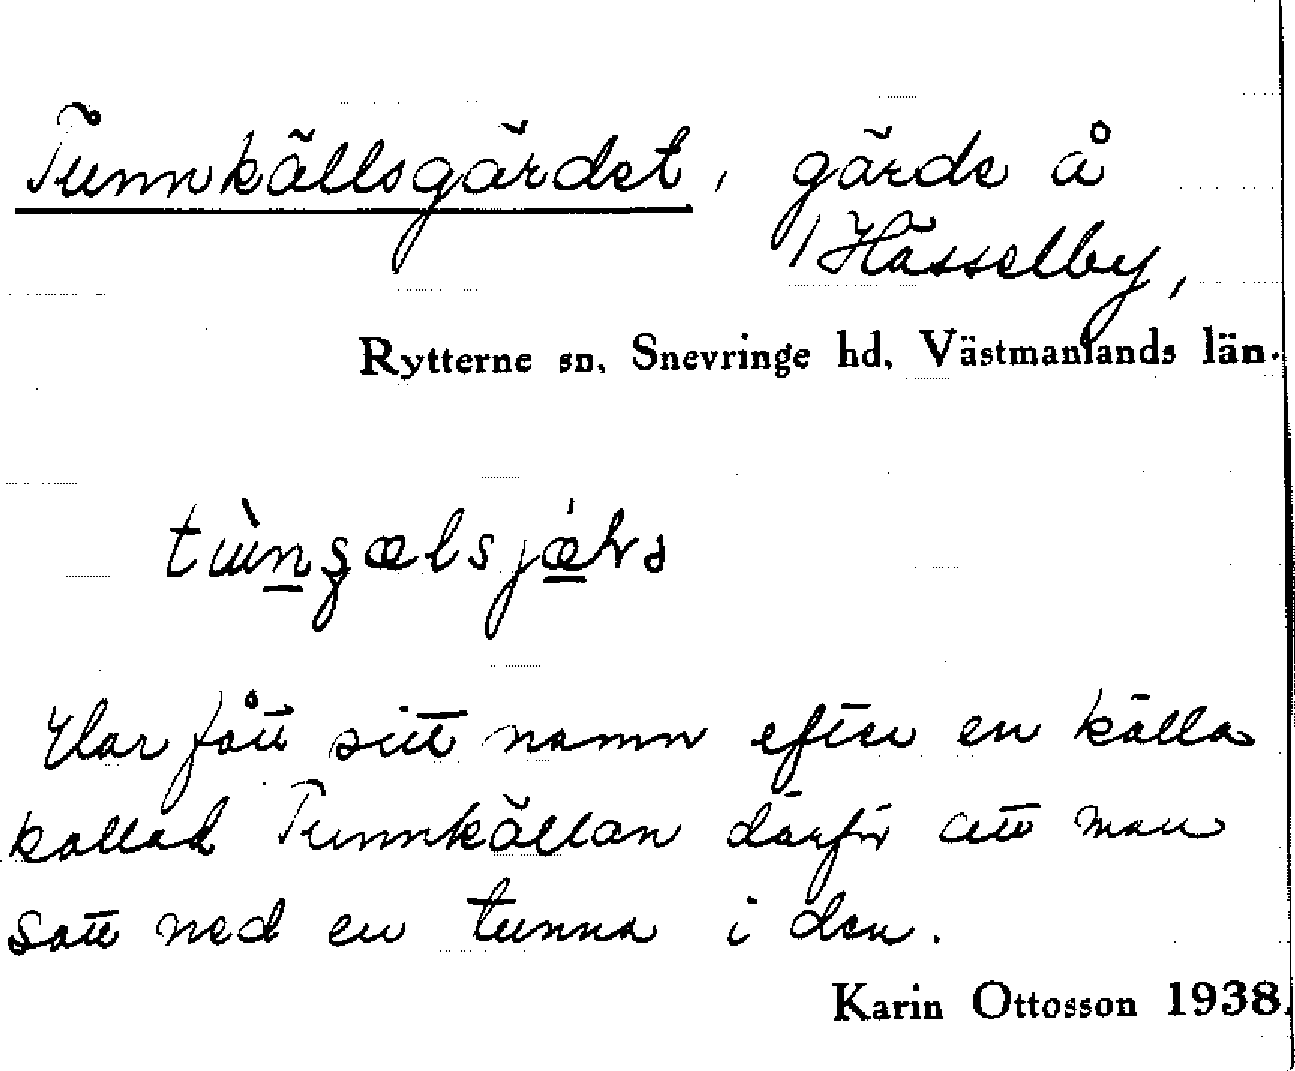 Tunnkällsgärdet, gärde å
Hässelby,
Rytterne sn, Snevringe hd, Västmanlands län.
Har fått sitt namn efter en källa
kallad Tunnkällan därför att man
satt ned en tunna i den.
Karin Ottosson 1938.